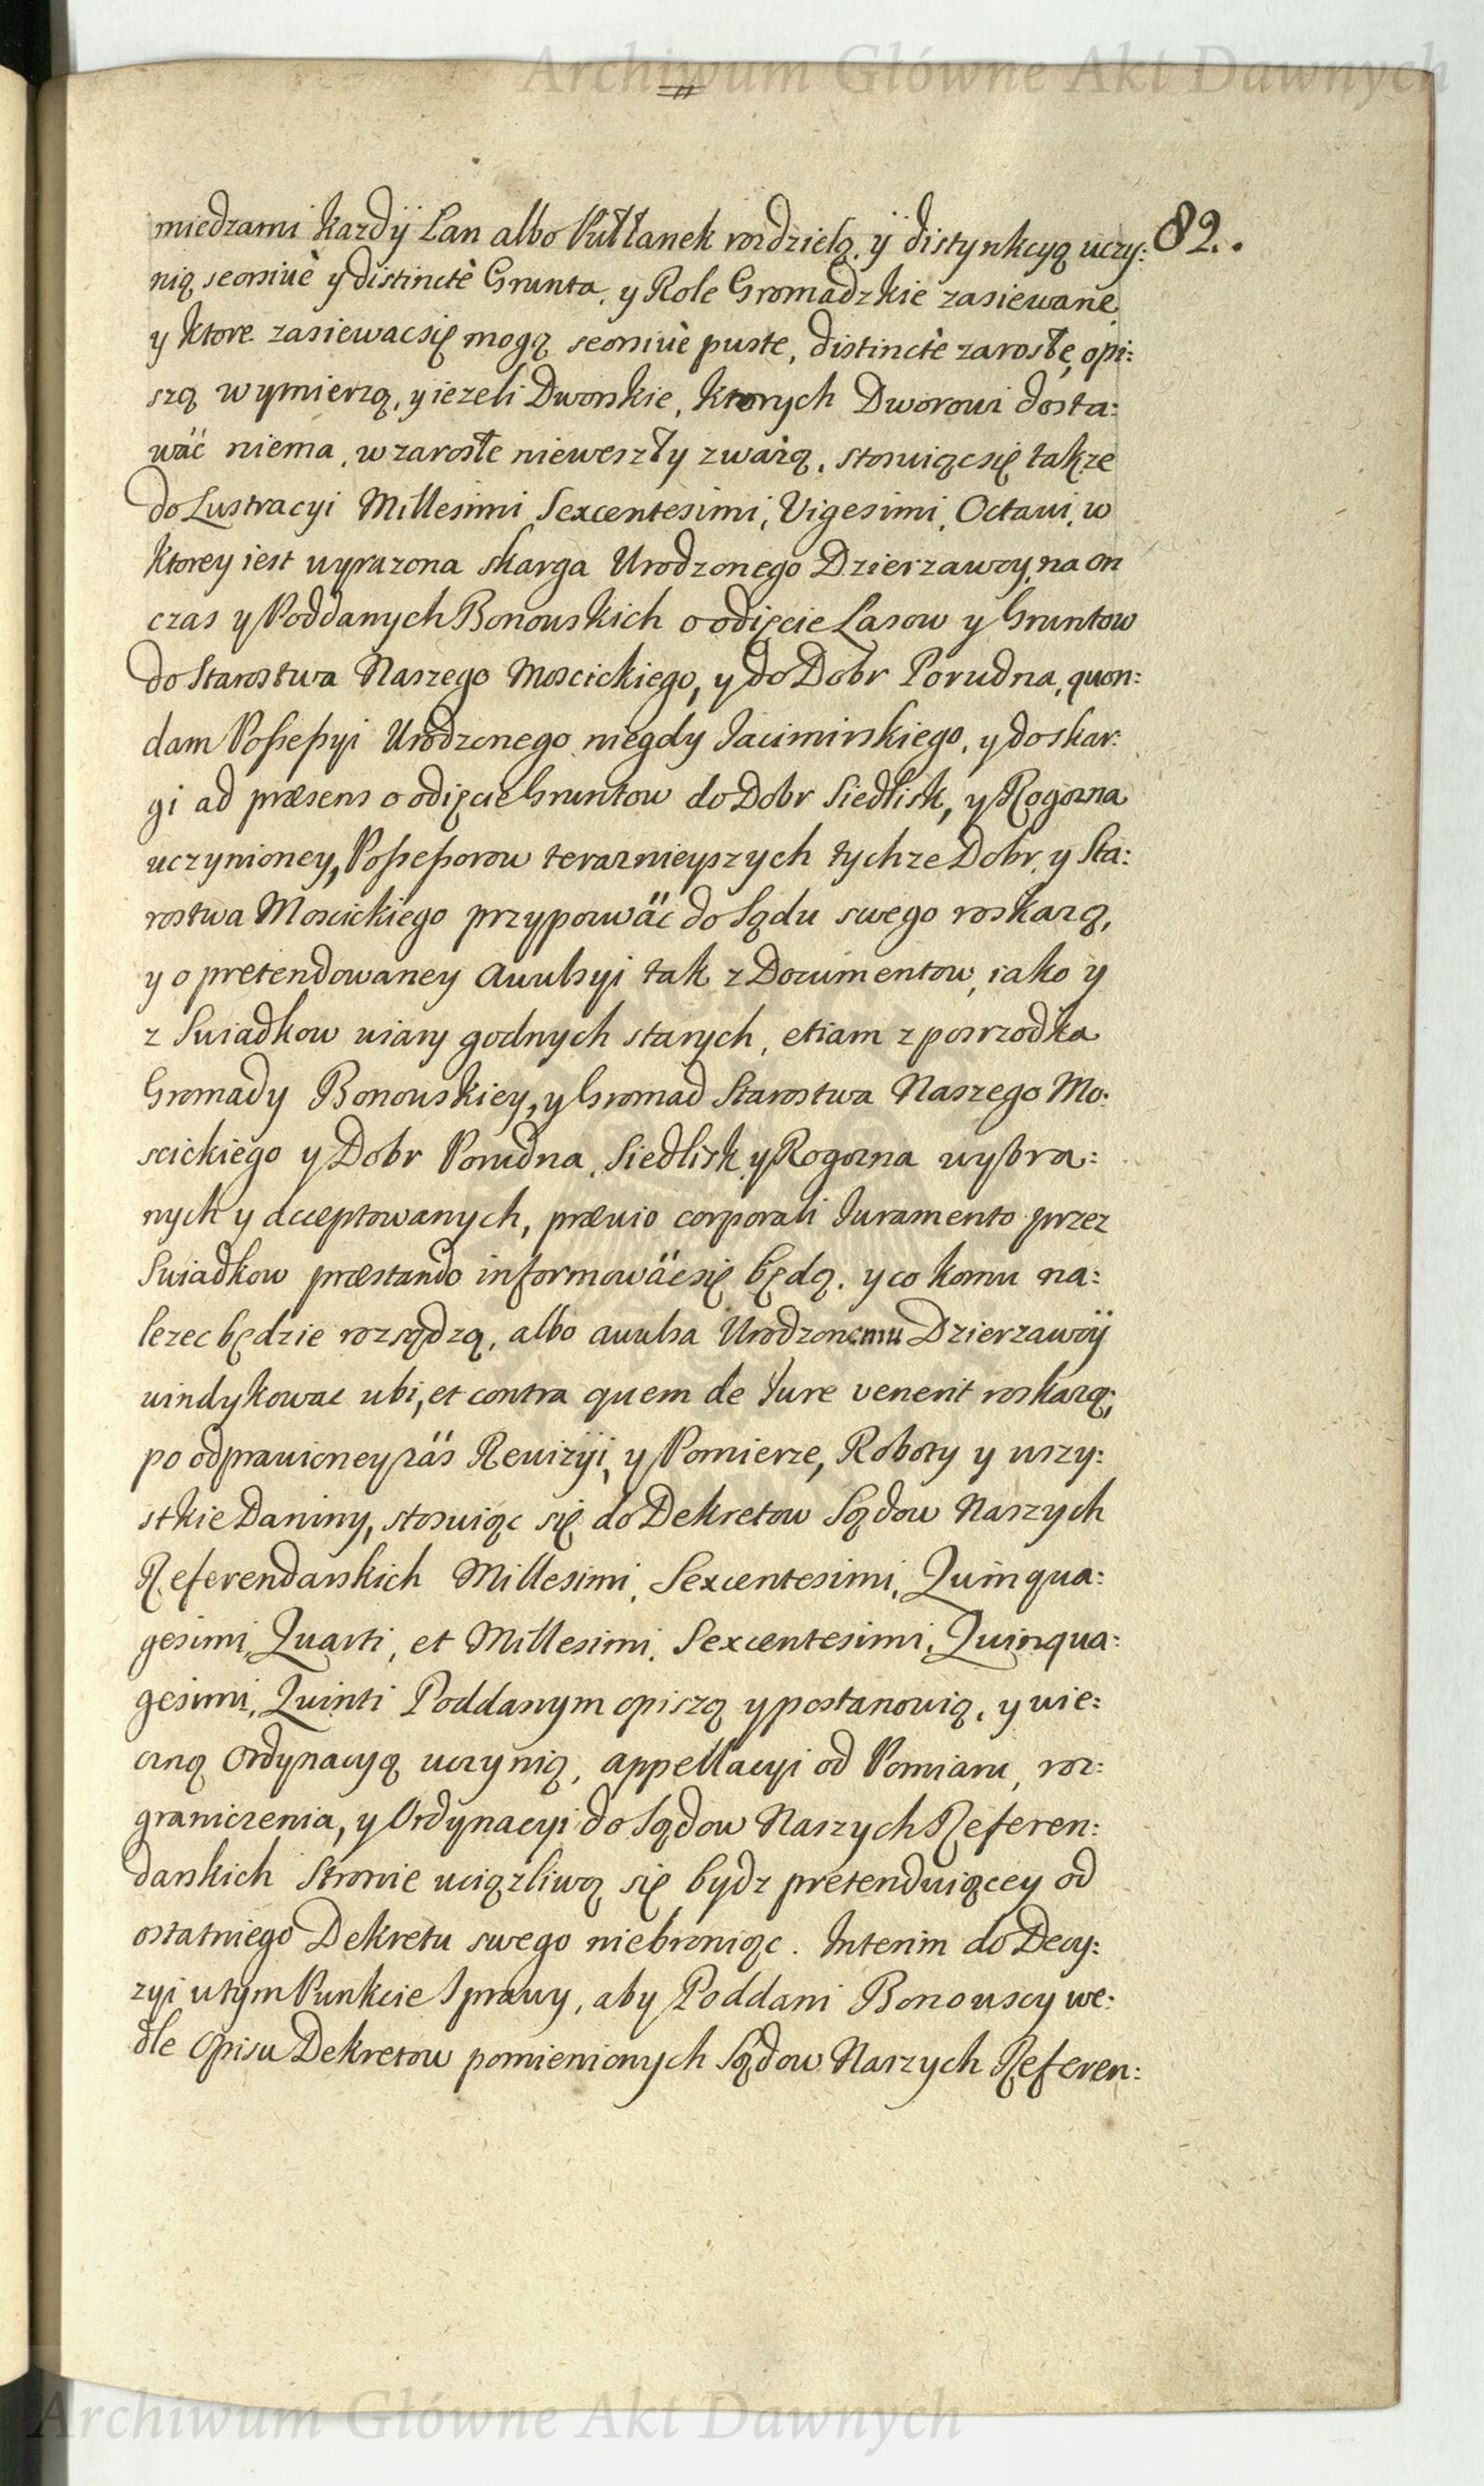 Archiwum Główne Akt Dawnych
82.
miedzami kazdÿ Łan albo Pułłanek rozdzielą, ÿ distynkcyą uczy:
nią seorsivè y distinctè Grunta, y Role Gromadzkie zasiewane
y ktore zasiewacsię mogą seorsivè puste, distinctè zarosłe, opi:
szą wymierzą, y iezeli Dworskie, ktorych Dworowi dosta:
wäć niema, w zarosłe nieweszły zwarzą, stosuiącsię takze
do Lustracyi Millesimi Sexcentesimi, Vigesimi, Octaui, w
ktorey iest wyrazona skarga Urodzonego Dzierzawcy, na on
czas y Poddanych Bonowskich o odięcie Lasow y Gruntow
do Starostwa Naszego Moscickiego, y do Dobr Porudna, quon:
dam Possessyi Urodzonego niegdy Jacimirskiego, y do skar:
gi ad præsens o odięcie Gruntow do Dobr Siedlisk, y Rogozna
uczynioney, Possessorow teraznieyszych tychze Dobr, y Sta:
rostwa Moscickiego przypozwäć do Sądu swego roskazą,
y o pretendowaney Auulsyi tak z Documentow, iako y
z Swiadkow wiary godnych starych, etiam z posrzodka
Gromady Bonowskiey, y Gromad Starostwa Naszego Mo:
scickiego y Dobr Porudna, Siedlisk, y Rogozna wybra:
nych y acceptowanych, præuio corporali Juramento przez
Swiadkow præstando informowäćsię będą, y co komu na:
lezec będzie rozsądzą, albo auulsa Urodzonemu Dzierzawcÿ
windykowac ubi, et contra quem de Jure venerit roskazą;
po odprawioney zäs Rewizyi, y Pomierze, Roboty y wszy:
stkie Daniny, stosuiąc się do Dekretow Sądow Naszych
Referendarskich Millesimi, Sexcentesimi, Quinqua:
gesimi, Quarti, et Millesimi, Sexcentesimi, Quinqua:
gesimi, Quinti Poddanym opiszą y postanowią, y wie:
czną Ordynacyą uczynią, appellacyi od Pomiaru, roz:
graniczenia, y Ordynacyi do Sądow Naszych Referen:
darskich Stronie uciązliwą się bydz pretenduiącey od
ostatniego Dekretu swego niebroniąc. Interim do Decy:
zyi w tym Punkcie Sprawy, aby Poddani Bonowscy we:
dle Opisu Dekretow pomienionych Sądow Naszych Referen:
Archiwum Główne Akt Dawnych